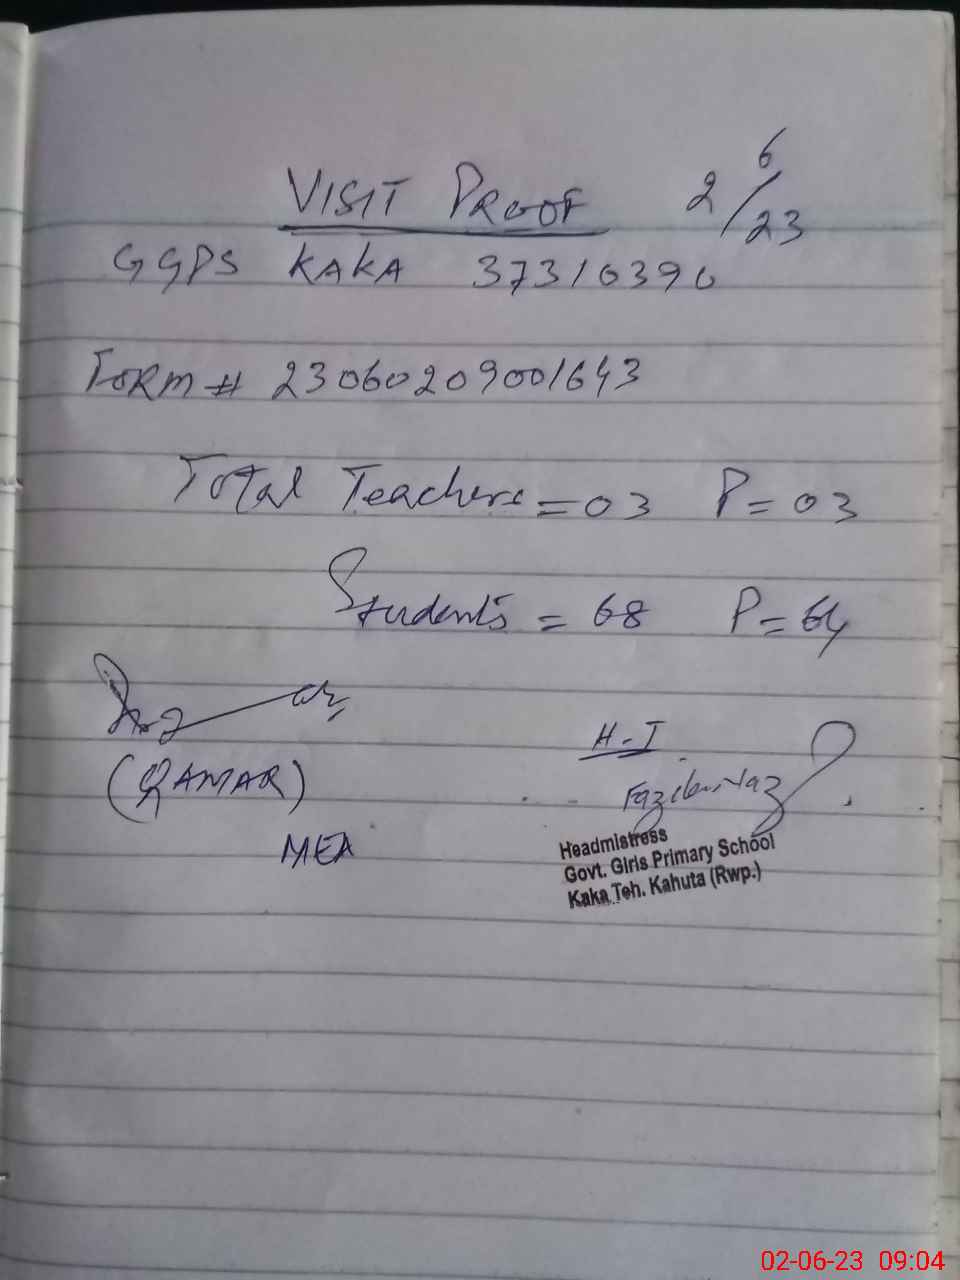 VISIT PROOF 2/6/23
GGPS KAKA 37310390
FORM # 23060209001643
Total Teachers = 03 P = 03
Students = 68 P = 64
(QAMAR)
MEA
H-T
Headmistress
Govt. Girls Primary School
Kaka Teh. Kahuta (Rwp.)
02-06-23 09:04